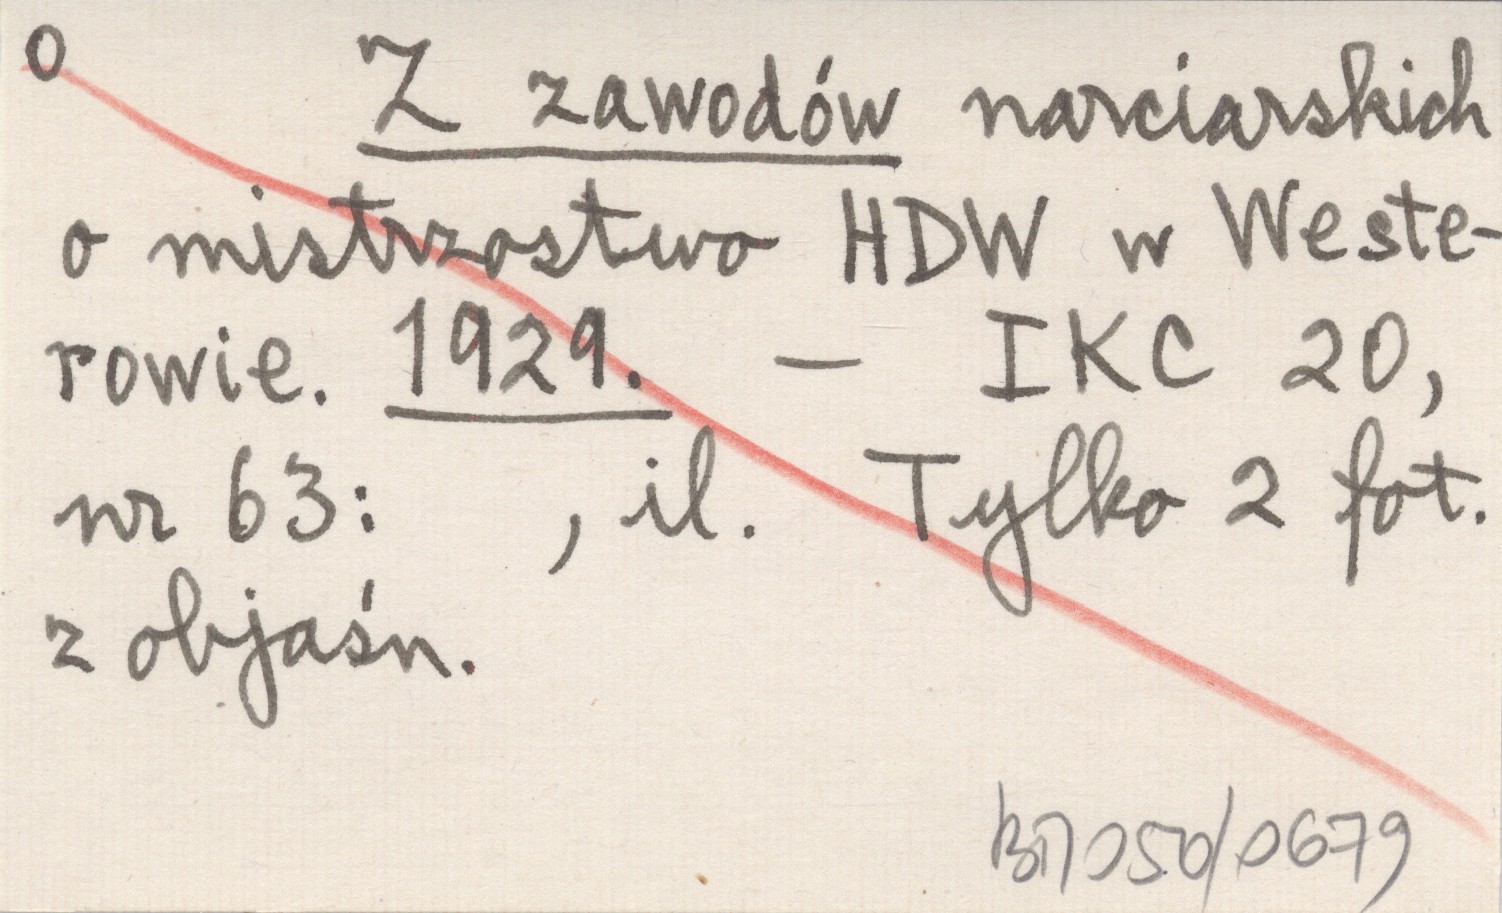 O Z zawodów narciarskich
o mistrzostwo HDW w Weste-
rowie. 1929. — IKC 20,
nr 63: , il. Tylko 2 fot.
z objaśn.
050/0679